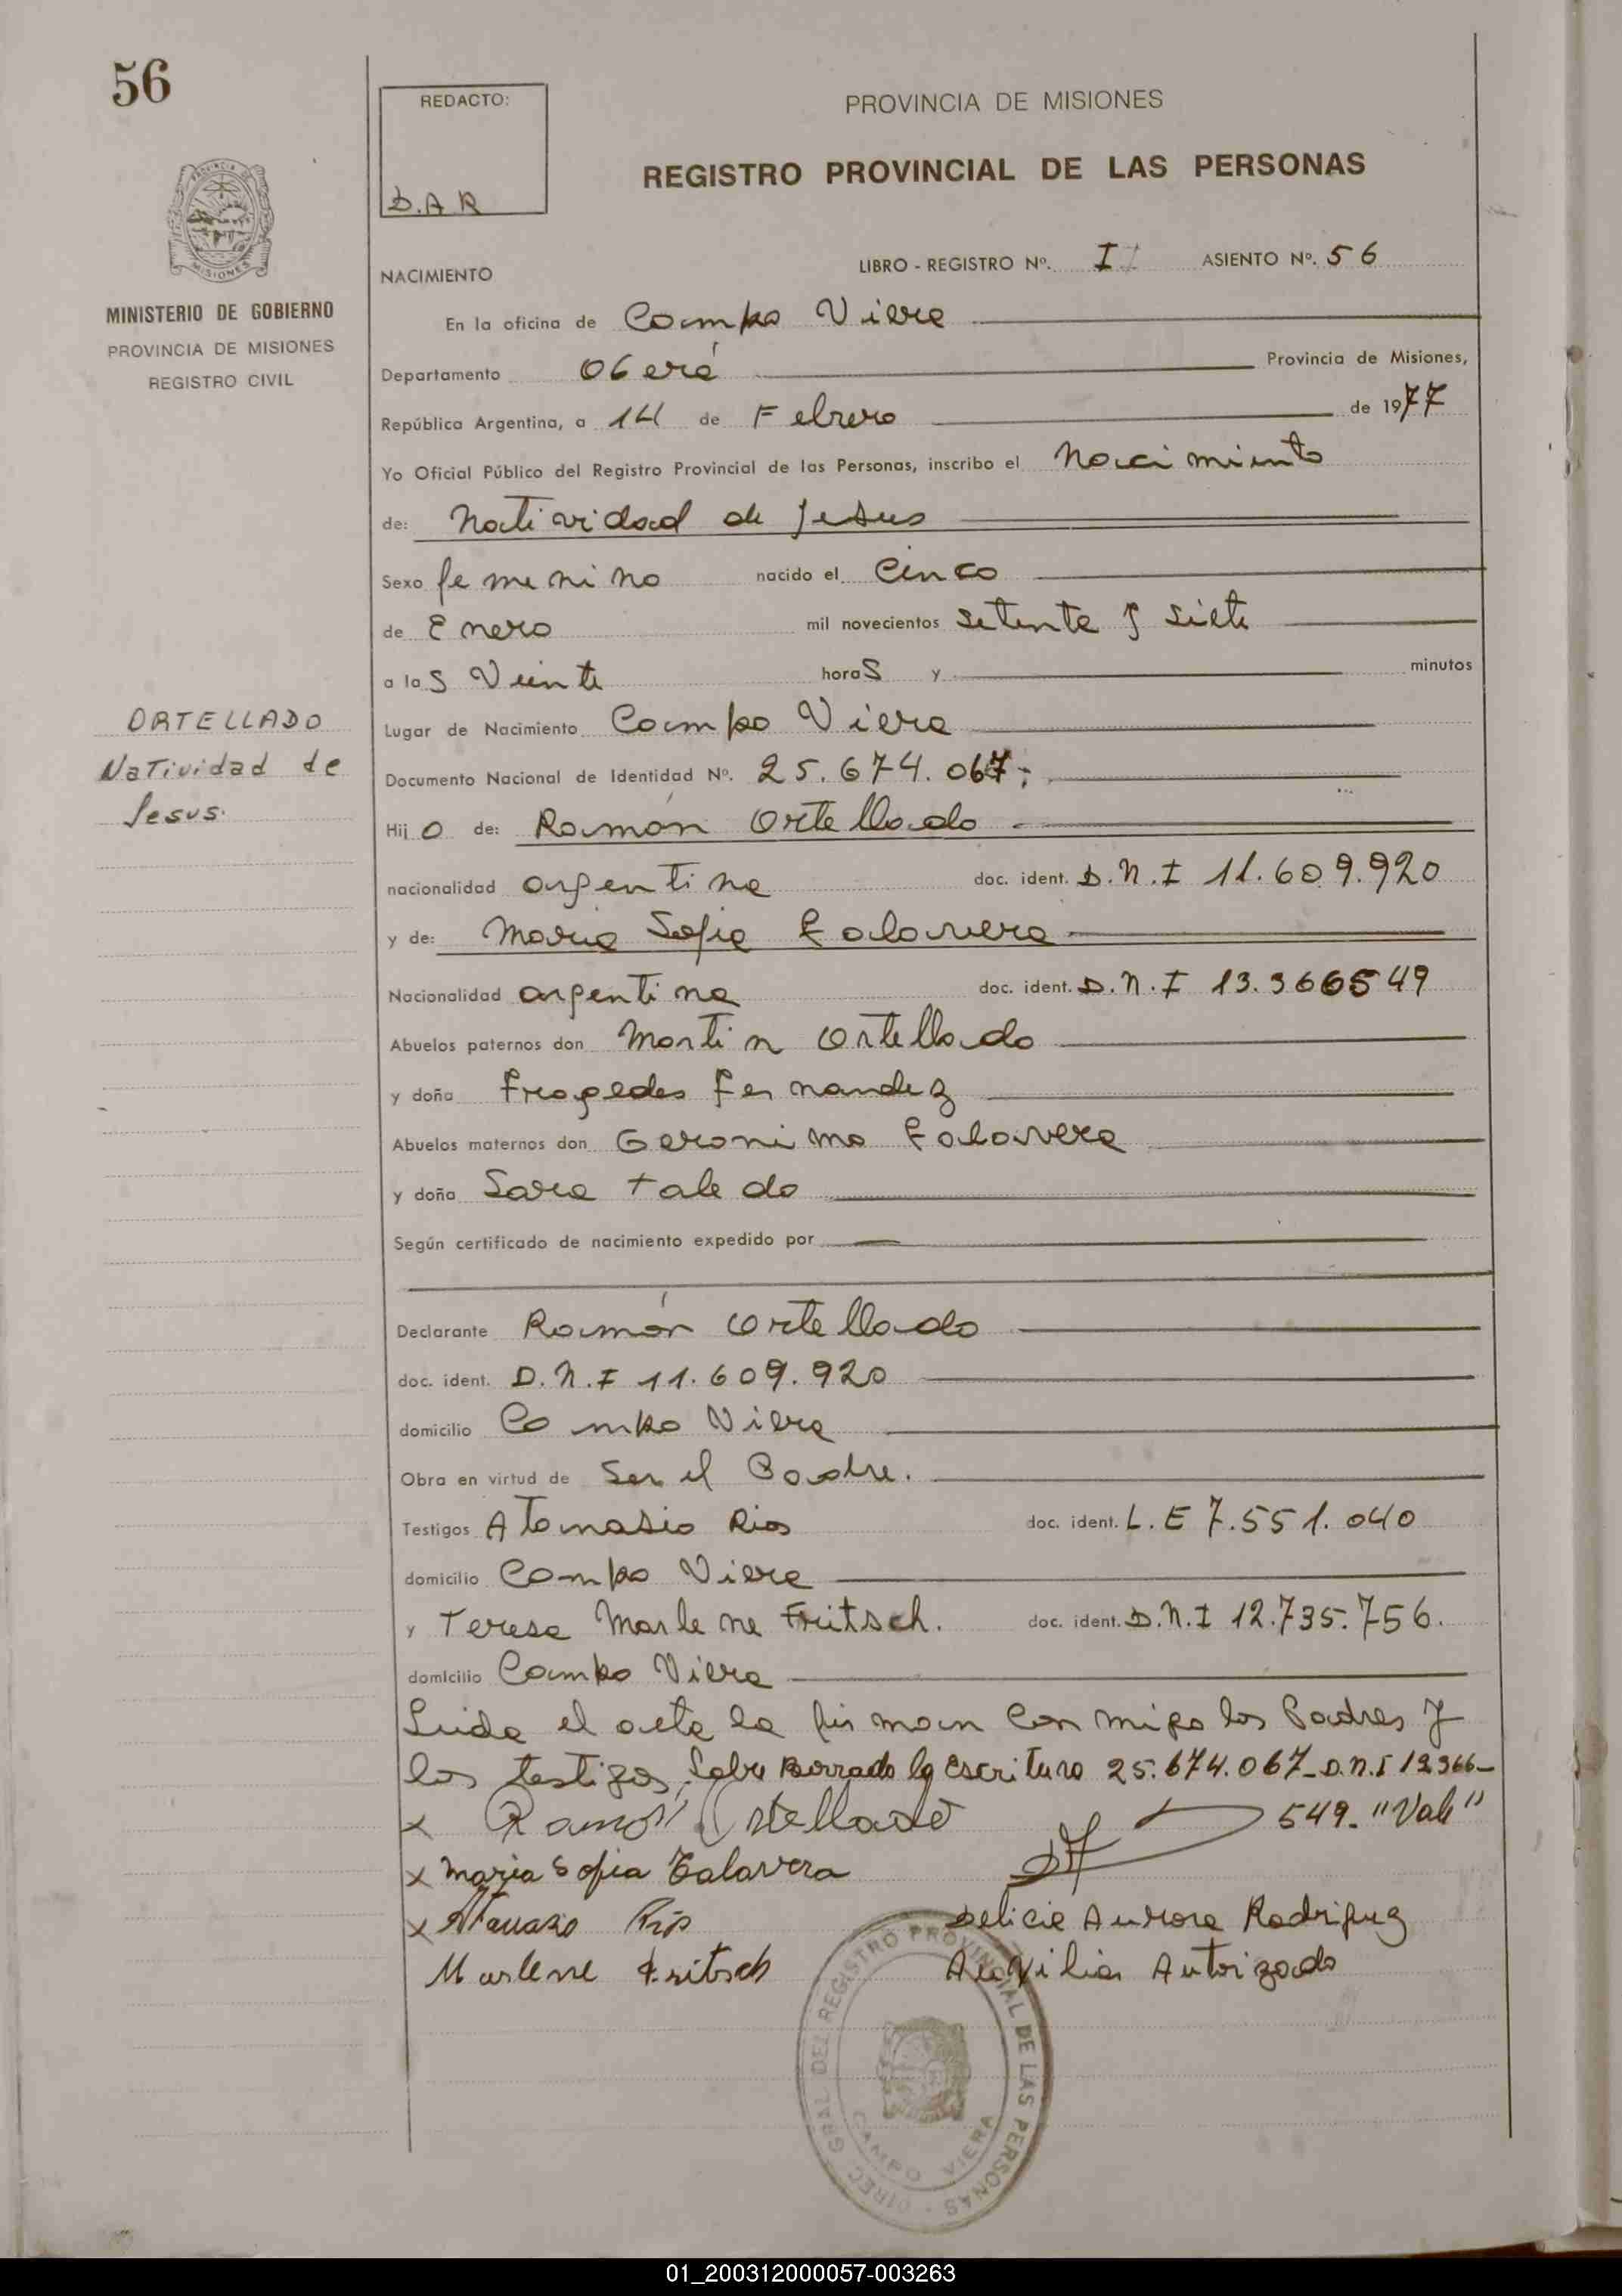 56
REDACTO:
D.A R
PROVINCIA DE MISIONES
REGISTRO PROVINCIAL DE LAS PERSONAS
MINISTERIO DE GOBIERNO
PROVINCIA DE MISIONES
REGISTRO CIVIL
NACIMIENTO
LIBRO - REGISTRO Nº. I ASIENTO Nº. 56
En la oficina de Campo Viera
Departamento Oberá Provincia de Misiones,
República Argentina, a 14 de Febrero de 1977
Yo Oficial Público del Registro Provincial de las Personas, inscribo el Nacimiento
de: Natividad de Jesus
Sexo femenino nacido el Cinco
de Enero mil novecientos Setenta y Siete
a las Veinte horas y minutos
ORTELLADO
Natividad de
Jesus.
Lugar de Nacimiento Campo Viera
Documento Nacional de Identidad Nº. 25.674.067;
Hijo de: Ramón Ortellado
nacionalidad argentina doc. ident. D.N.I 11.609.920
y de: Maria Sofia Talavera
Nacionalidad argentina doc. ident. D.N.I 13.366549
Abuelos paternos don Martin Ortellado
y doña Fernandez
Abuelos maternos don Geronimo Talavera
y doña Sara Toledo
Según certificado de nacimiento expedido por
Declarante Ramón Ortellado
doc. ident. D.N.I 11.609.920
domicilio Campo Viera
Obra en virtud de Ser el Padre.
Testigos Atanasio Rios doc. ident. L.E 7.551.040
domicilio Campo Viera
y Teresa Marlene Fritsch. doc. ident. D.N.I 12.735.756.
domicilio Campo Viera
Leida el acta la firman Conmigo los Padres y
los testigos, Sobre Borrado la escritura 25.674.067_D.N.I 13.366-
x Ramón Ortellado 549. "Vale"
x Maria Sofia Talavera
x Atanasio Rios Delicia Aurora Rodriguez
Marlene Fritsch Auxiliar Autorizado
DIREC. GRAL DEL REGISTRO PROVINCIAL DE LAS PERSONAS
CAMPO VIERA
01_200312000057-003263